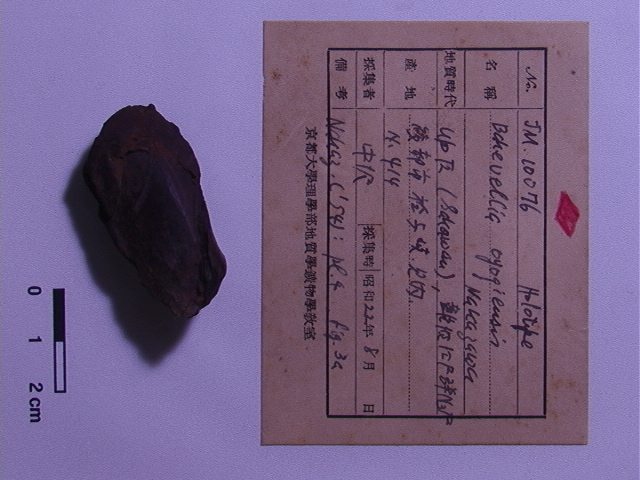 No. JM.10076 Holotype
名稱 Bakevellia oyogiensis
Nakazawa
地質時代 Up R (Sakawan),
產地
N. 414
採集者 中沢 採集時 昭和22年8月 日
備考 Nakaz. ('54): pl.4 fig.3a
京都大學理學部地質學鑛物學敎室
0 1 2 cm